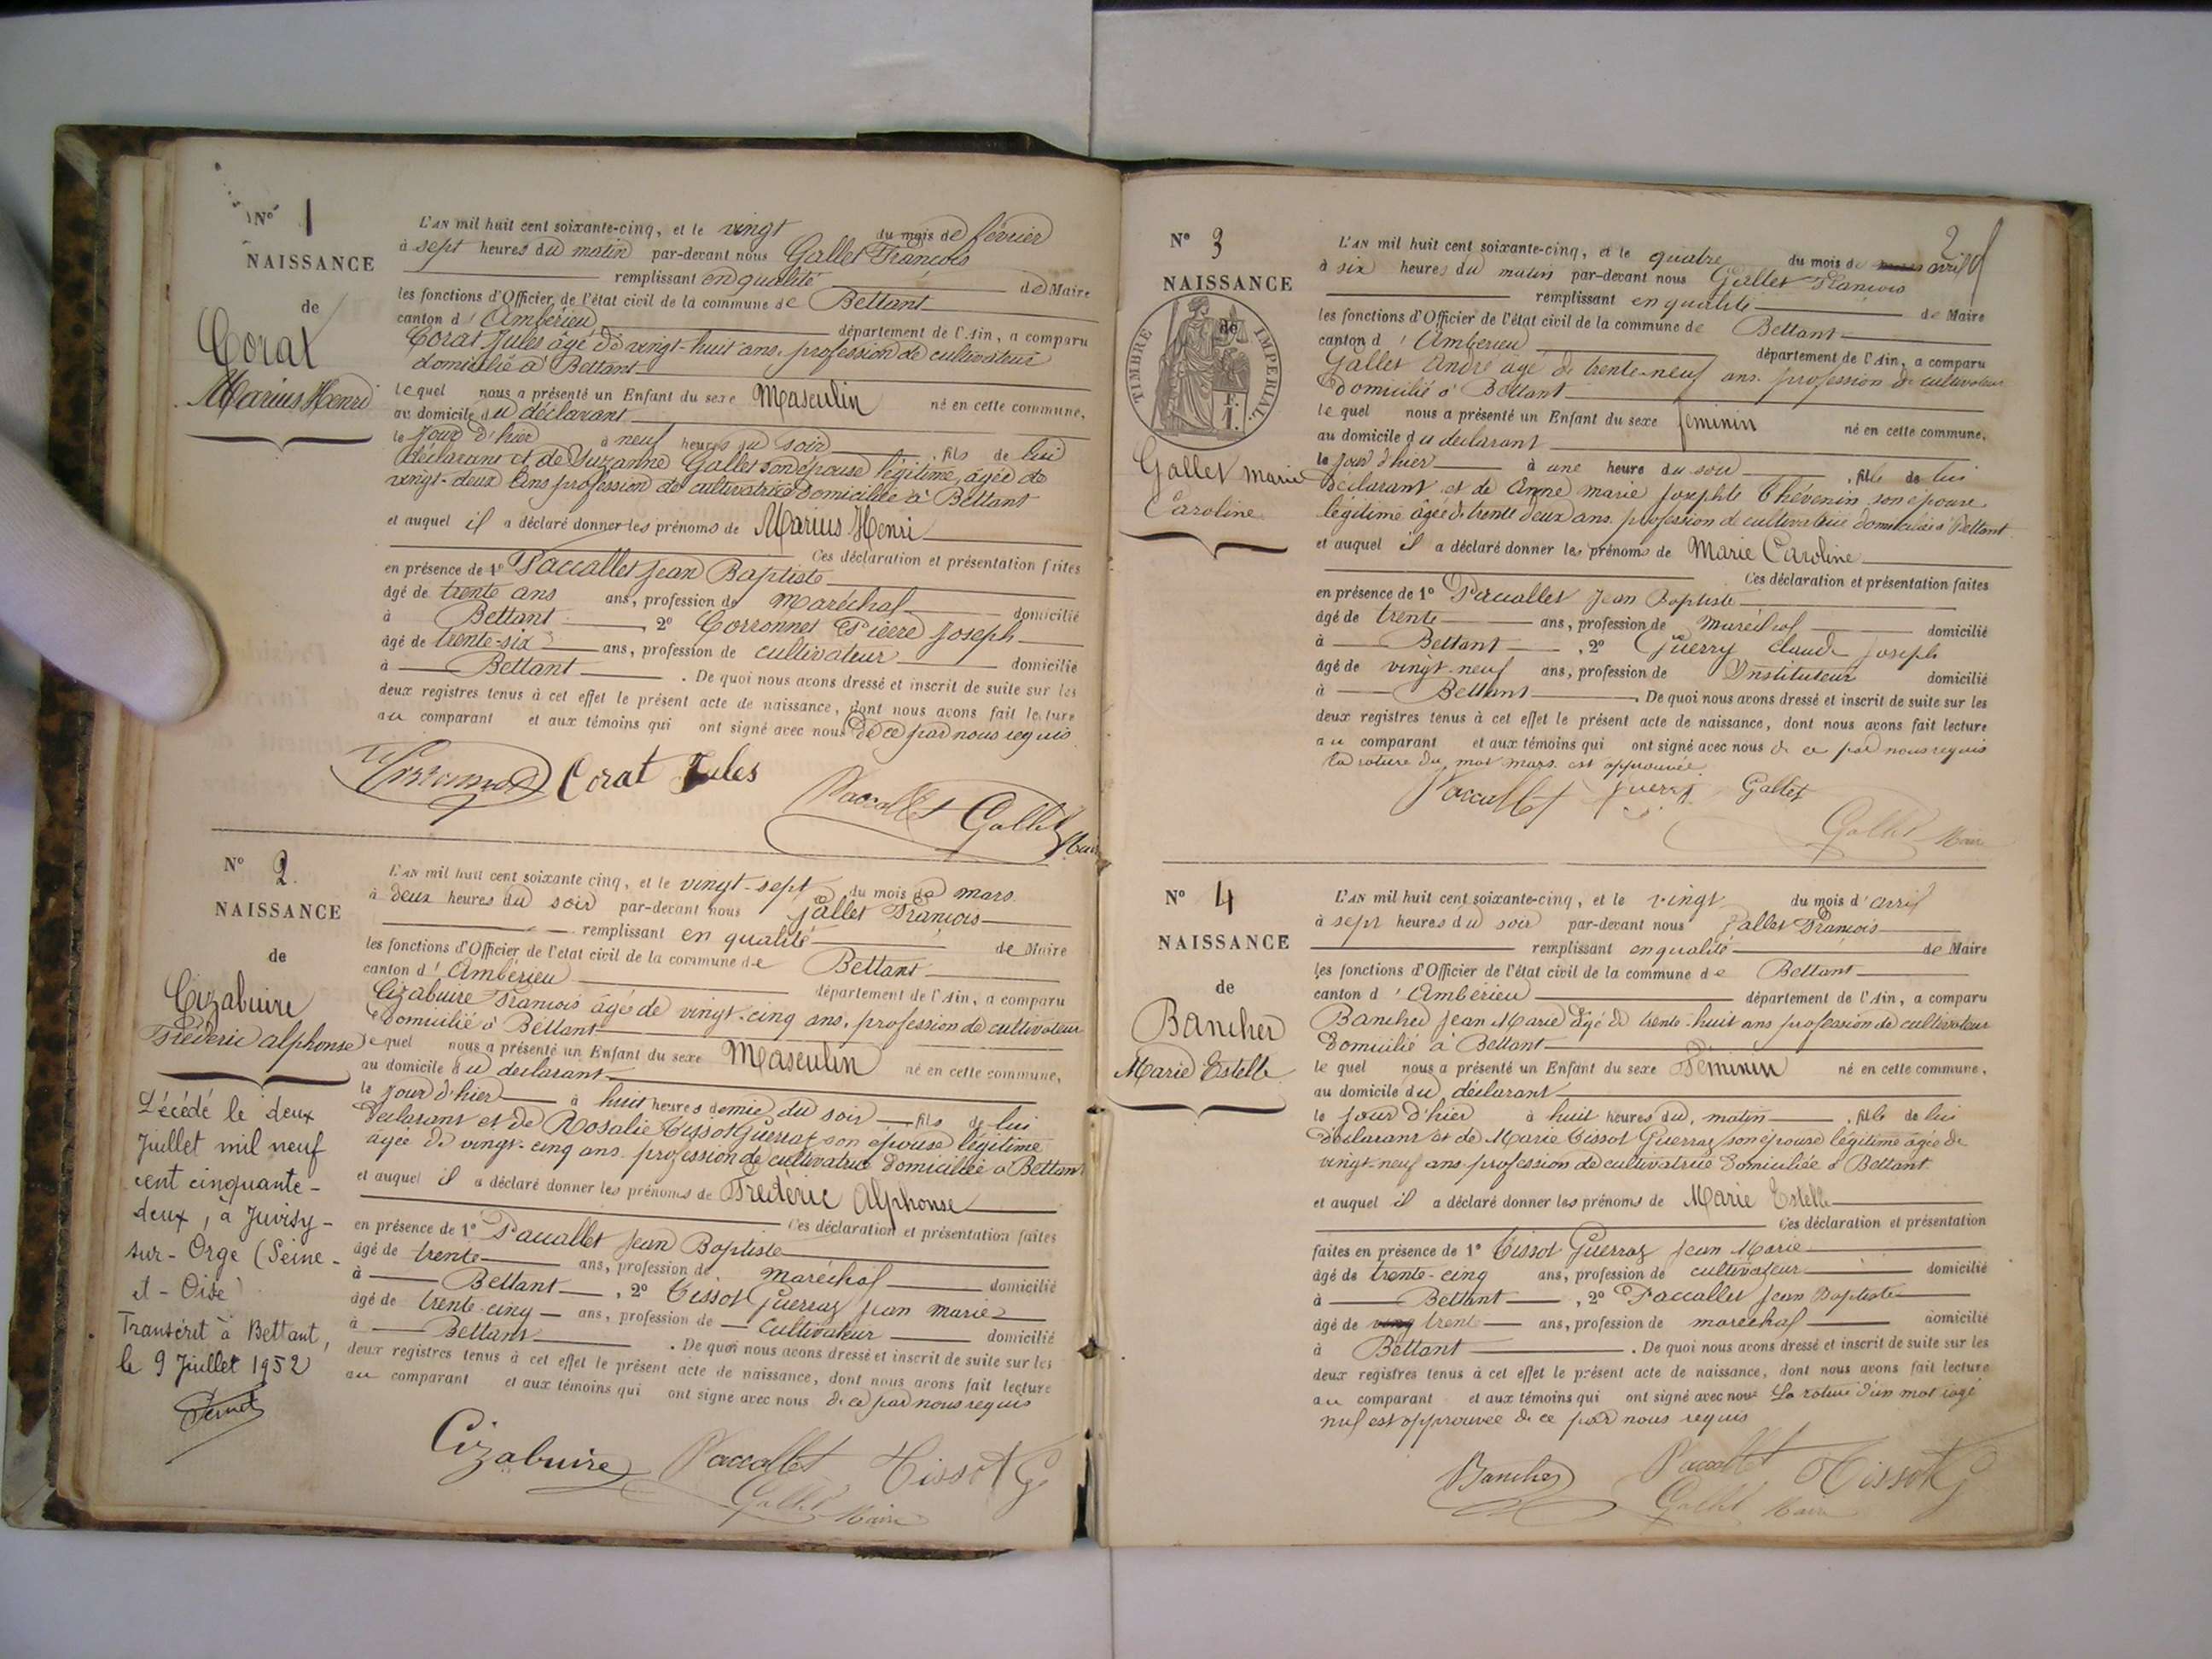 N° 1
NAISSANCE
de
Corat
Marius Henri
L'AN mil huit cent soixante-cinq, et le vingt du mois de février
à sept heures du matin par-devant nous Gallet François
remplissant en qualité de Maire
les fonctions d'Officier de l'état civil de la commune de Bettant
canton d'Ambérieu département de l'Ain, a comparu
Corat Jules âgé de vingt-huit ans, profession de cultivateur
domicilié à Bettant
lequel nous a présenté un Enfant du sexe Masculin né en cette commune,
au domicile du déclarant
le jour d'hier à neuf heures du soir, fils de lui
déclarant et de Suzanne Gallet son épouse légitime, agée de
vingt-deux ans profession de cultivatrice domiciliée à Bettant
et auquel il a déclaré donner les prénoms de Marius Henri
Ces déclaration et présentation faites
en présence de 1° Paccallet Jean Baptiste
âgé de trente ans ans, profession de Maréchal domicilié
à Bettant, 2° Corronnet Pierre Joseph
âgé de trente-six ans, profession de cultivateur domicilié
à Bettant. De quoi nous avons dressé et inscrit de suite sur les
deux registres tenus à cet effet le présent acte de naissance, dont nous avons fait lecture
au comparant et aux témoins qui ont signé avec nous de ce par nous requis
Corat Jules
Paccallet Gallet Maire
N° 2.
NAISSANCE
de
Cizabuire
Fréderic alphonse
Décédé le deux
Juillet mil neuf
cent cinquante-
deux, à Juvisy-
sur-Orge (Seine-
et-Oise)
Transcrit à Bettant,
le 9 Juillet 1952
L'AN mil huit cent soixante cinq, et le vingt-sept du mois de mars
à deux heures du soir par-devant nous Gallet François
remplissant en qualité de Maire
les fonctions d'Officier de l'état civil de la commune de Bettant
canton d'Ambérieu département de l'Ain, a comparu
Cizabuire François âgé de vingt-cinq ans, profession de cultivateur
domicilié à Bettant
lequel nous a présenté un Enfant du sexe Masculin né en cette commune,
au domicile du declarant
le jour d'hier à huit heures demie du soir fils de lui
declarant et de Rosalie Tissot Guerraz son épouse légitime
agée de vingt-cinq ans profession de cultivatrice domiciliée à Bettant
et auquel il a déclaré donner les prénoms de Fréderic Alphonse
Ces déclaration et présentation faites
en présence de 1° Paccallet Jean Baptiste
âgé de trente ans, profession de maréchal domicilié
à Bettant, 2° Tissot Guerraz jean marie
âgé de trente-cinq ans, profession de Cultivateur domicilié
à Bettant. De quoi nous avons dressé et inscrit de suite sur les
deux registres tenus à cet effet le présent acte de naissance, dont nous avons fait lecture
au comparant et aux témoins qui ont signé avec nous de ce par nous requis
Cizabuire Paccallet Tissot G
Gallet Maire
2
N° 3
NAISSANCE
de
TIMBRE IMPERIAL
Gallet marie
Caroline
L'AN mil huit cent soixante-cinq, et le quatre du mois de mars avril
à six heures du matin par-devant nous Gallet François
remplissant en qualité de Maire
les fonctions d'Officier de l'état civil de la commune de Bettant
canton d'Ambérieu département de l'Ain, a comparu
Gallet André âgé de trente-neuf ans, profession de cultivateur
domicilié à Bettant
lequel nous a présenté un Enfant du sexe feminin né en cette commune,
au domicile du declarant
le jour d'hier à une heure du soir, fille de lui
déclarant et de Anne marie Josephte Thévenin son epouse
légitime âgée de trente deux ans, profession de cultivatrice domiciliée à Bettant
et auquel il a déclaré donner les prénoms de Marie Caroline
Ces déclaration et présentation faites
en présence de 1° Paccallet Jean Baptiste
âgé de trente ans, profession de Maréchal domicilié
à Bettant, 2° Guerry claude Joseph
âgé de vingt-neuf ans, profession de Instituteur domicilié
à Bettant. De quoi nous avons dressé et inscrit de suite sur les
deux registres tenus à cet effet le présent acte de naissance, dont nous avons fait lecture
au comparant et aux témoins qui ont signé avec nous de ce par nous requis
la rature du mot mars est approuvée
Paccallet Guerry Gallet
Gallet Maire
N° 4
NAISSANCE
de
Bancher
Marie Estelle
L'AN mil huit cent soixante-cinq, et le vingt du mois d'avril
à sept heures du soir par-devant nous Gallet François
remplissant en qualité de Maire
les fonctions d'Officier de l'état civil de la commune de Bettant
canton d'Ambérieu département de l'Ain, a comparu
Bancher Jean Marie âgé de trente-huit ans profession de cultivateur
domicilié à Bettant
lequel nous a présenté un Enfant du sexe Féminin né en cette commune,
au domicile du déclarant
le jour d'hier à huit heures du matin, fille de lui
déclarant et de Marie Tissot Guerraz son epouse légitime agée de
vingt-neuf ans profession de cultivatrice domiciliée à Bettant
et auquel il a déclaré donner les prénoms de Marie Estelle
Ces déclaration et présentation
faites en présence de 1° Tissot Guerraz Jean Marie
âgé de trente-cinq ans, profession de cultivateur domicilié
à Bettant, 2° Paccallet Jean Baptiste
âgé de vingt trente ans, profession de maréchal domicilié
à Bettant. De quoi nous avons dressé et inscrit de suite sur les
deux registres tenus à cet effet le présent acte de naissance, dont nous avons fait lecture
au comparant et aux témoins qui ont signé avec nous La rature d'un mot rayé
nul est approuvée de ce par nous requis
Bancher Paccallet Tissot G
Gallet Maire